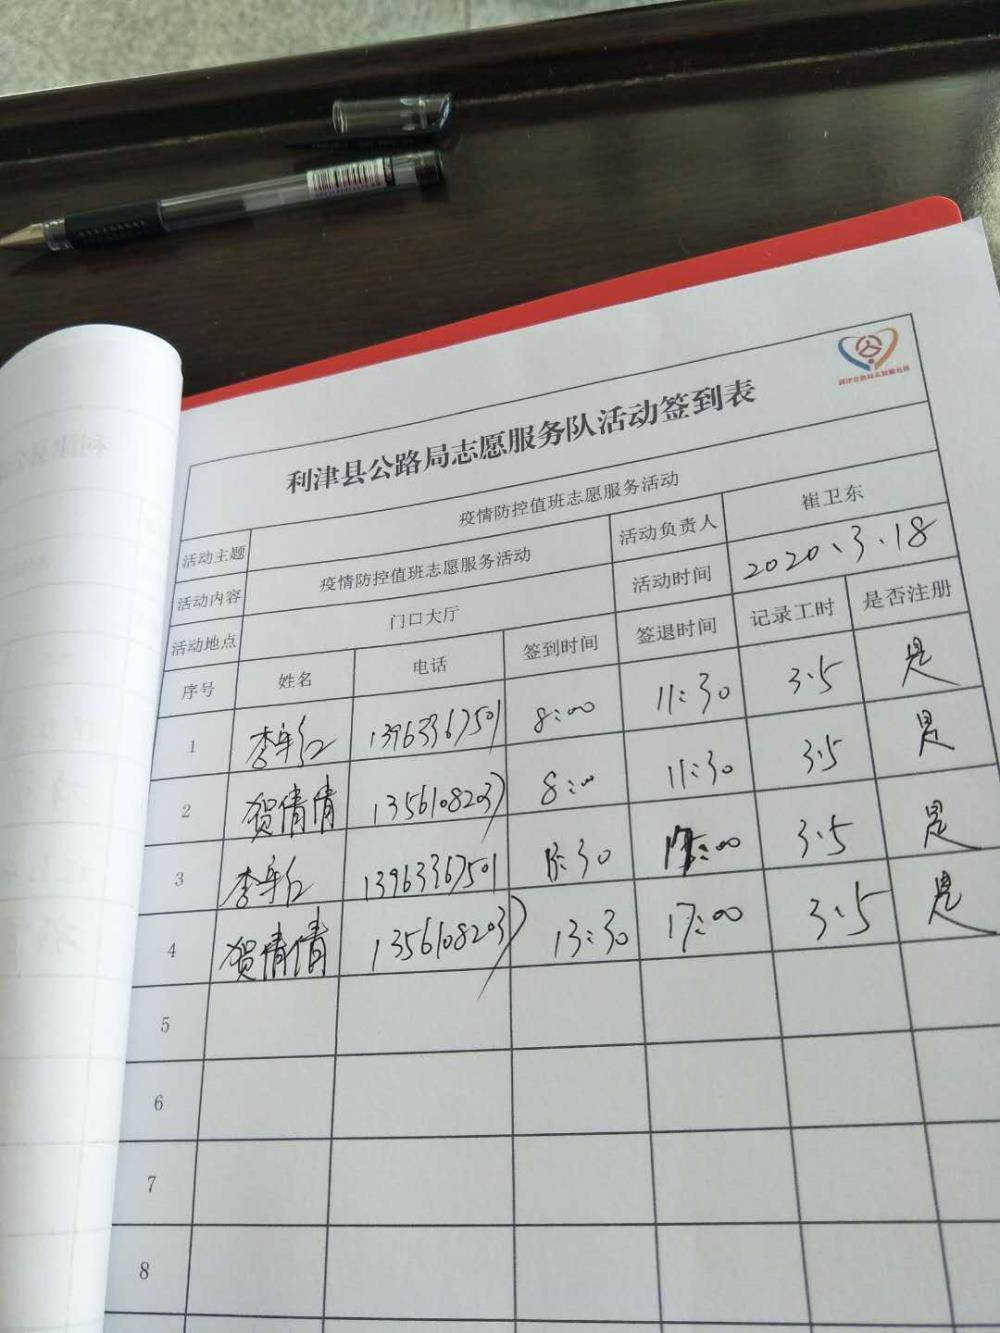 利津县公路局志愿服务队
利津县公路局志愿服务队活动签到表
活动主题 疫情防控值班志愿服务活动
活动内容 疫情防控值班志愿服务活动 活动负责人 崔卫东
活动地点 门口大厅 活动时间 2020、3、18
序号 姓名 电话 签到时间 签退时间 记录工时 是否注册
1 13963367501 8:00 11:30 3.5 是
2 贺倩倩 13561082037 8:00 11:30 3.5 是
3 13963367501 13:30 17:00 3.5 是
4 贺倩倩 13561082037 13:30 17:00 3.5 是
5
6
7
8